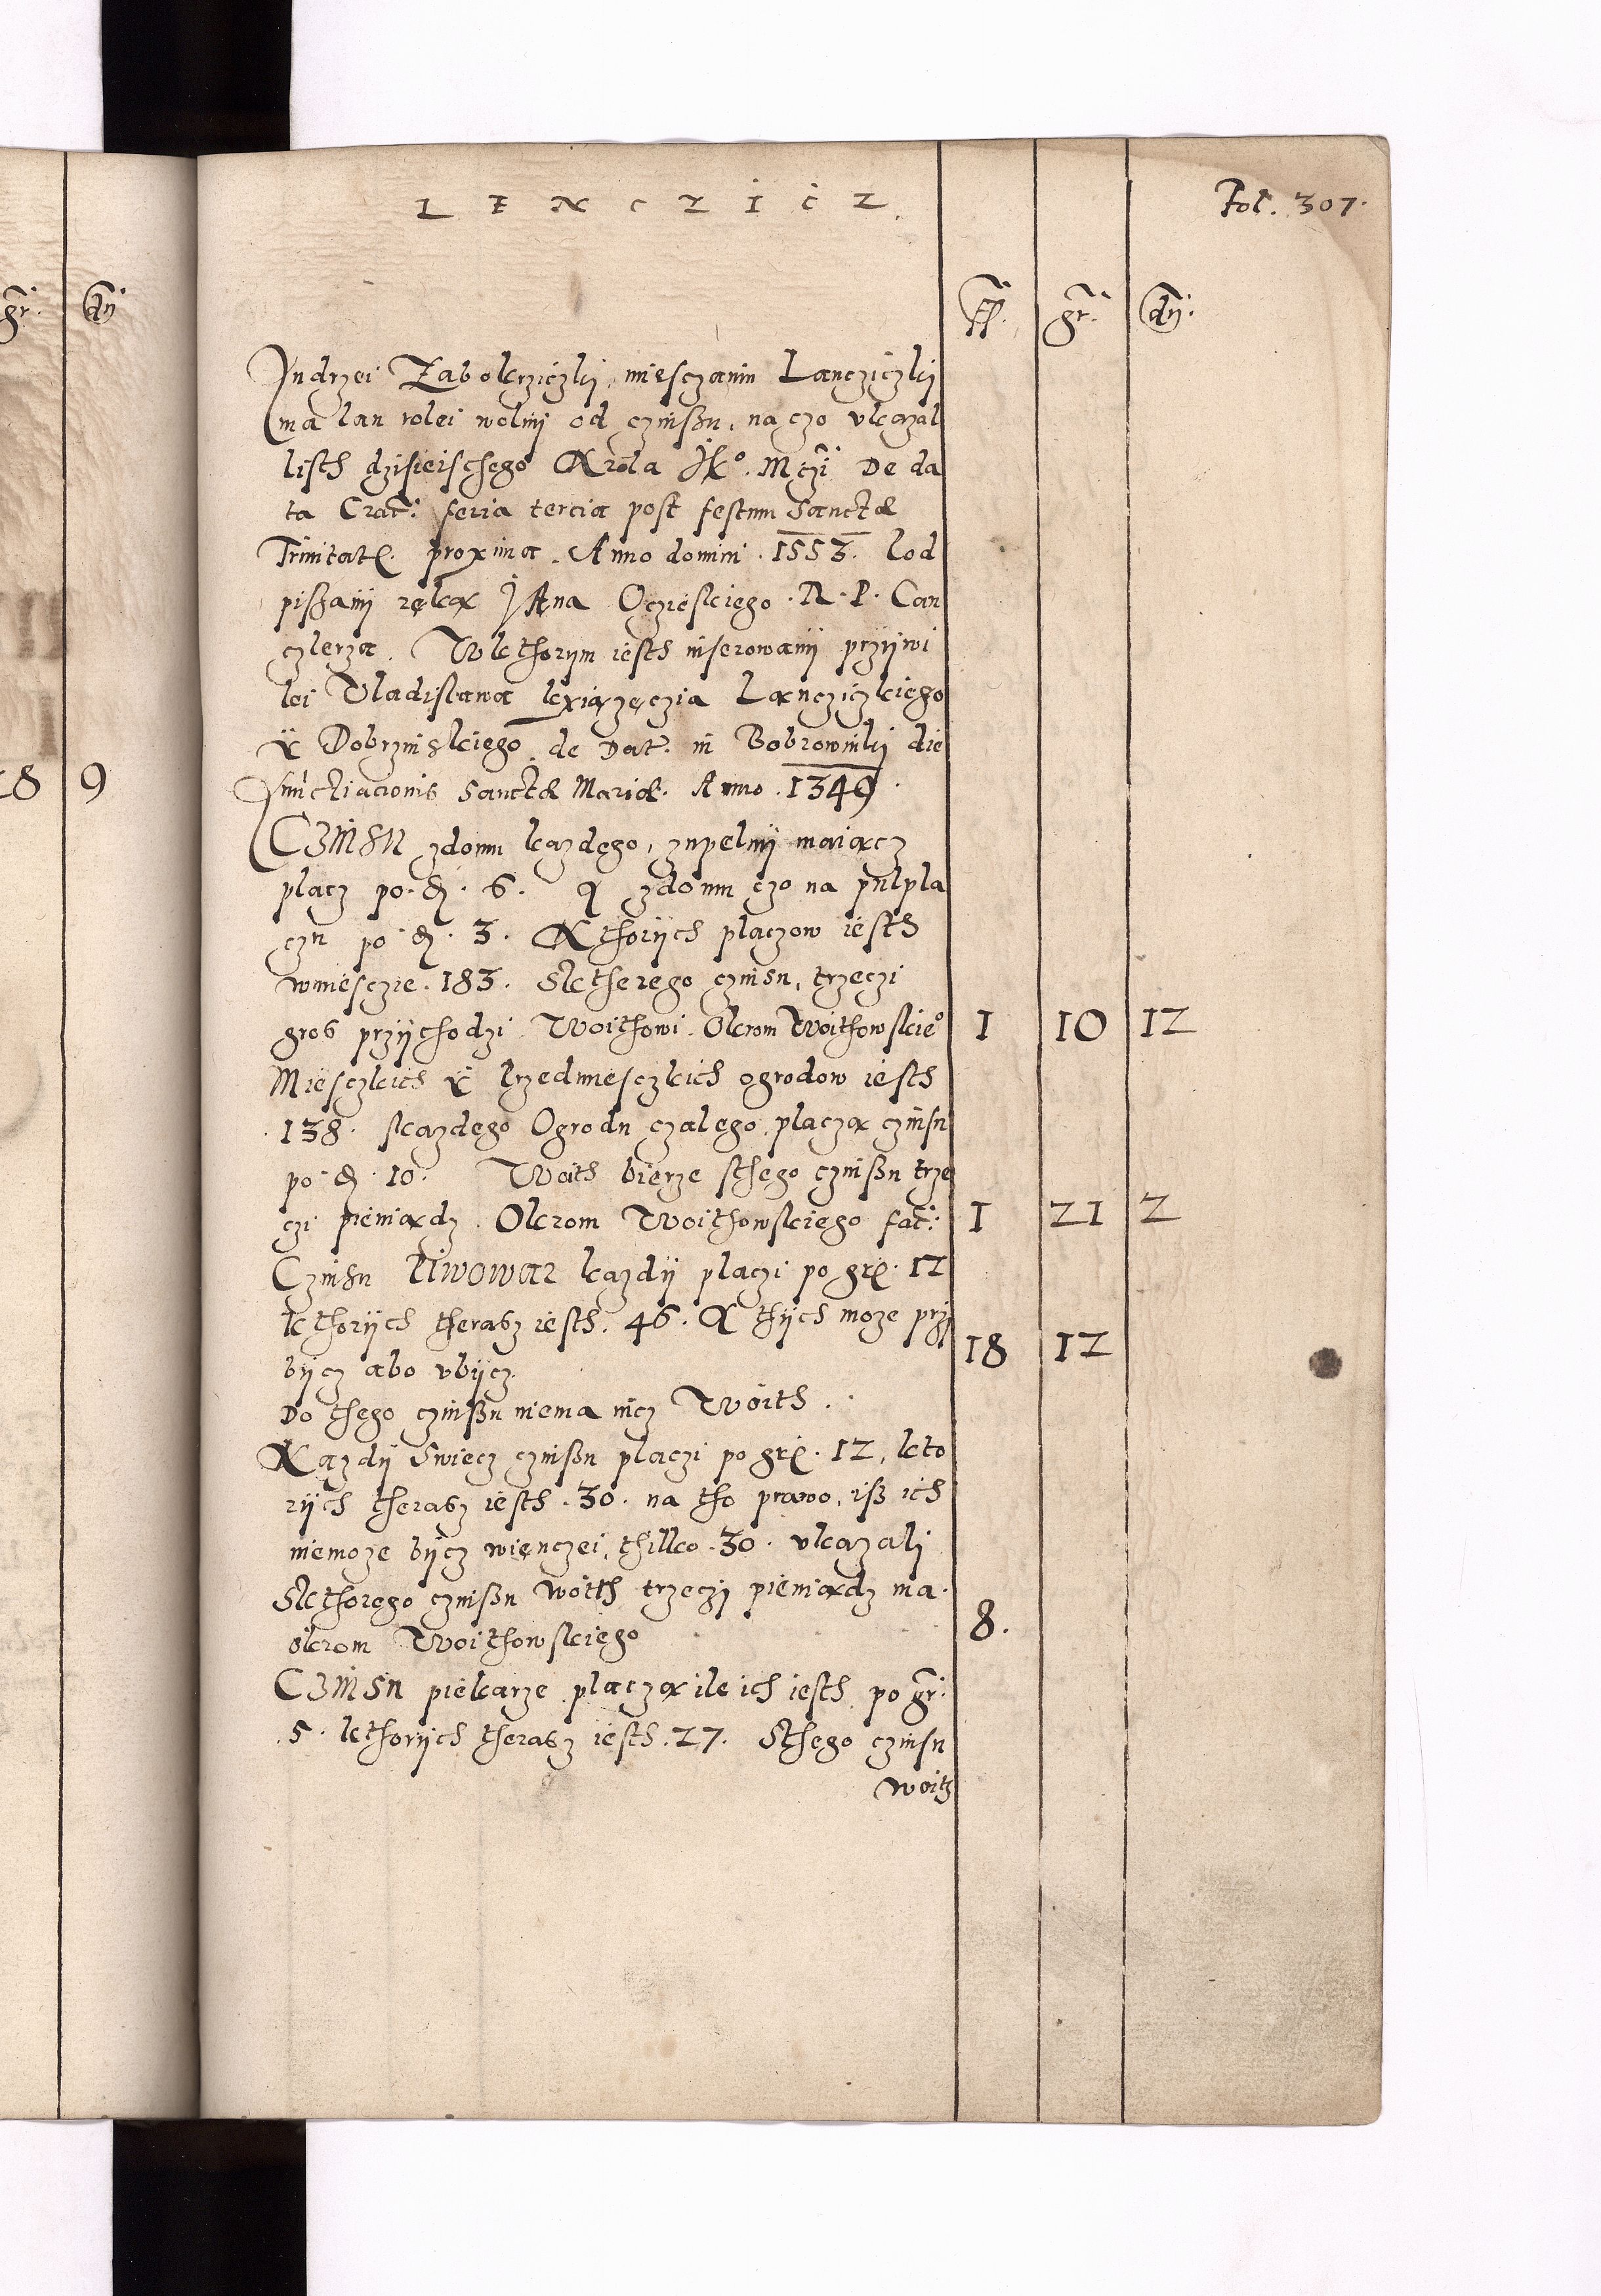 LENCZICZ.
Fol. 307.
fl. gr. dn.
gr. dn
Jndrzei Zabokrziczkj, miesczanin Lancziczkj
ma lan rolei wolny od czinßu, na czo vkazal
listh dzisieisthego Krola Jkº. Mczi De da
ta Crac: feria tercia post festum Sanctæ
Trinitatis proxima. Anno domini. 1553. Pod
pißany ręką JAna Oczieskiego. R. P. Can
czlerza. Wkthorym iesth inserowany przywi
lei Vladislawa kxiązęczia Lancziczkiego
y Dobrzinskiego de Dat. in Bobrownikj die
Sanctæ Mariæ. Anno. 1349.
28 9
CZINSN zdomu kazdego, zupelny maiącz
placz po. d. 6. A zdomu czo na pulpla
czu po d. 3. Kthorych placzow iesth
wmiesczie. 183. Sktherego czinsu, trzeczi
gros przychodzi Woithowi. Okrom Woithowskieº 1 10 12
Miesczkich y Przedmiesczkich ogrodow iesth
138. skazdego Ogrodu czalego placzą czinsu
po d. 10. Woith bierze sthego czinßu trze
czi pieniądz. Okrom Woithowskiego fac: 1 21 2
Czinsu Piwowar kazdy placzi po gr. 12
kthorych therasz iesth. 46. A thych moze przy
bycz abo vbycz. 18 12
Do thego czinßu niema nicz Woith.
Kazdy Swiecz czinßu placzi po gr. 12, kto
rych therasz iesth. 30. na tho prawo, iß ich
niemoze bycz więnczei, thilko. 30. vkazalj
Skthorego czinßu woith trzeczj pieniądz ma.
okrom Woithowskiego 8.
CZINSN piekarze placzą ile ich iesth po gr.
5. kthorych therasz iesth. 27. Sthego czinsu
woith